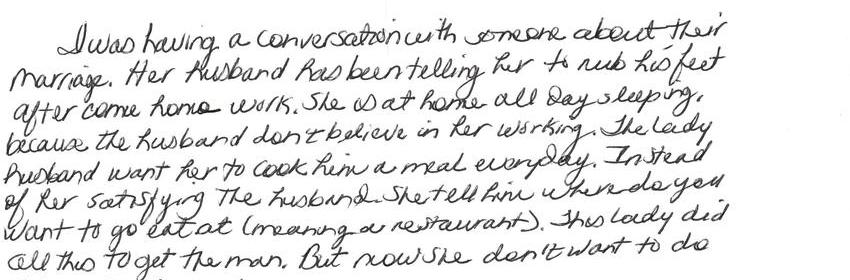 I was having a conversation with someone about their
marriage. Her husband has been telling her to rub his feet
after come home work. She is at home all day sleeping,
because the husband don't believe in her working. The lady
husband want her to cook him a meal everyday. Instead
of her satisfying the husband. She tell him where do you
want to go eat at (meaning a restaurant). This lady did
all this to get the man. But now she don't want to do